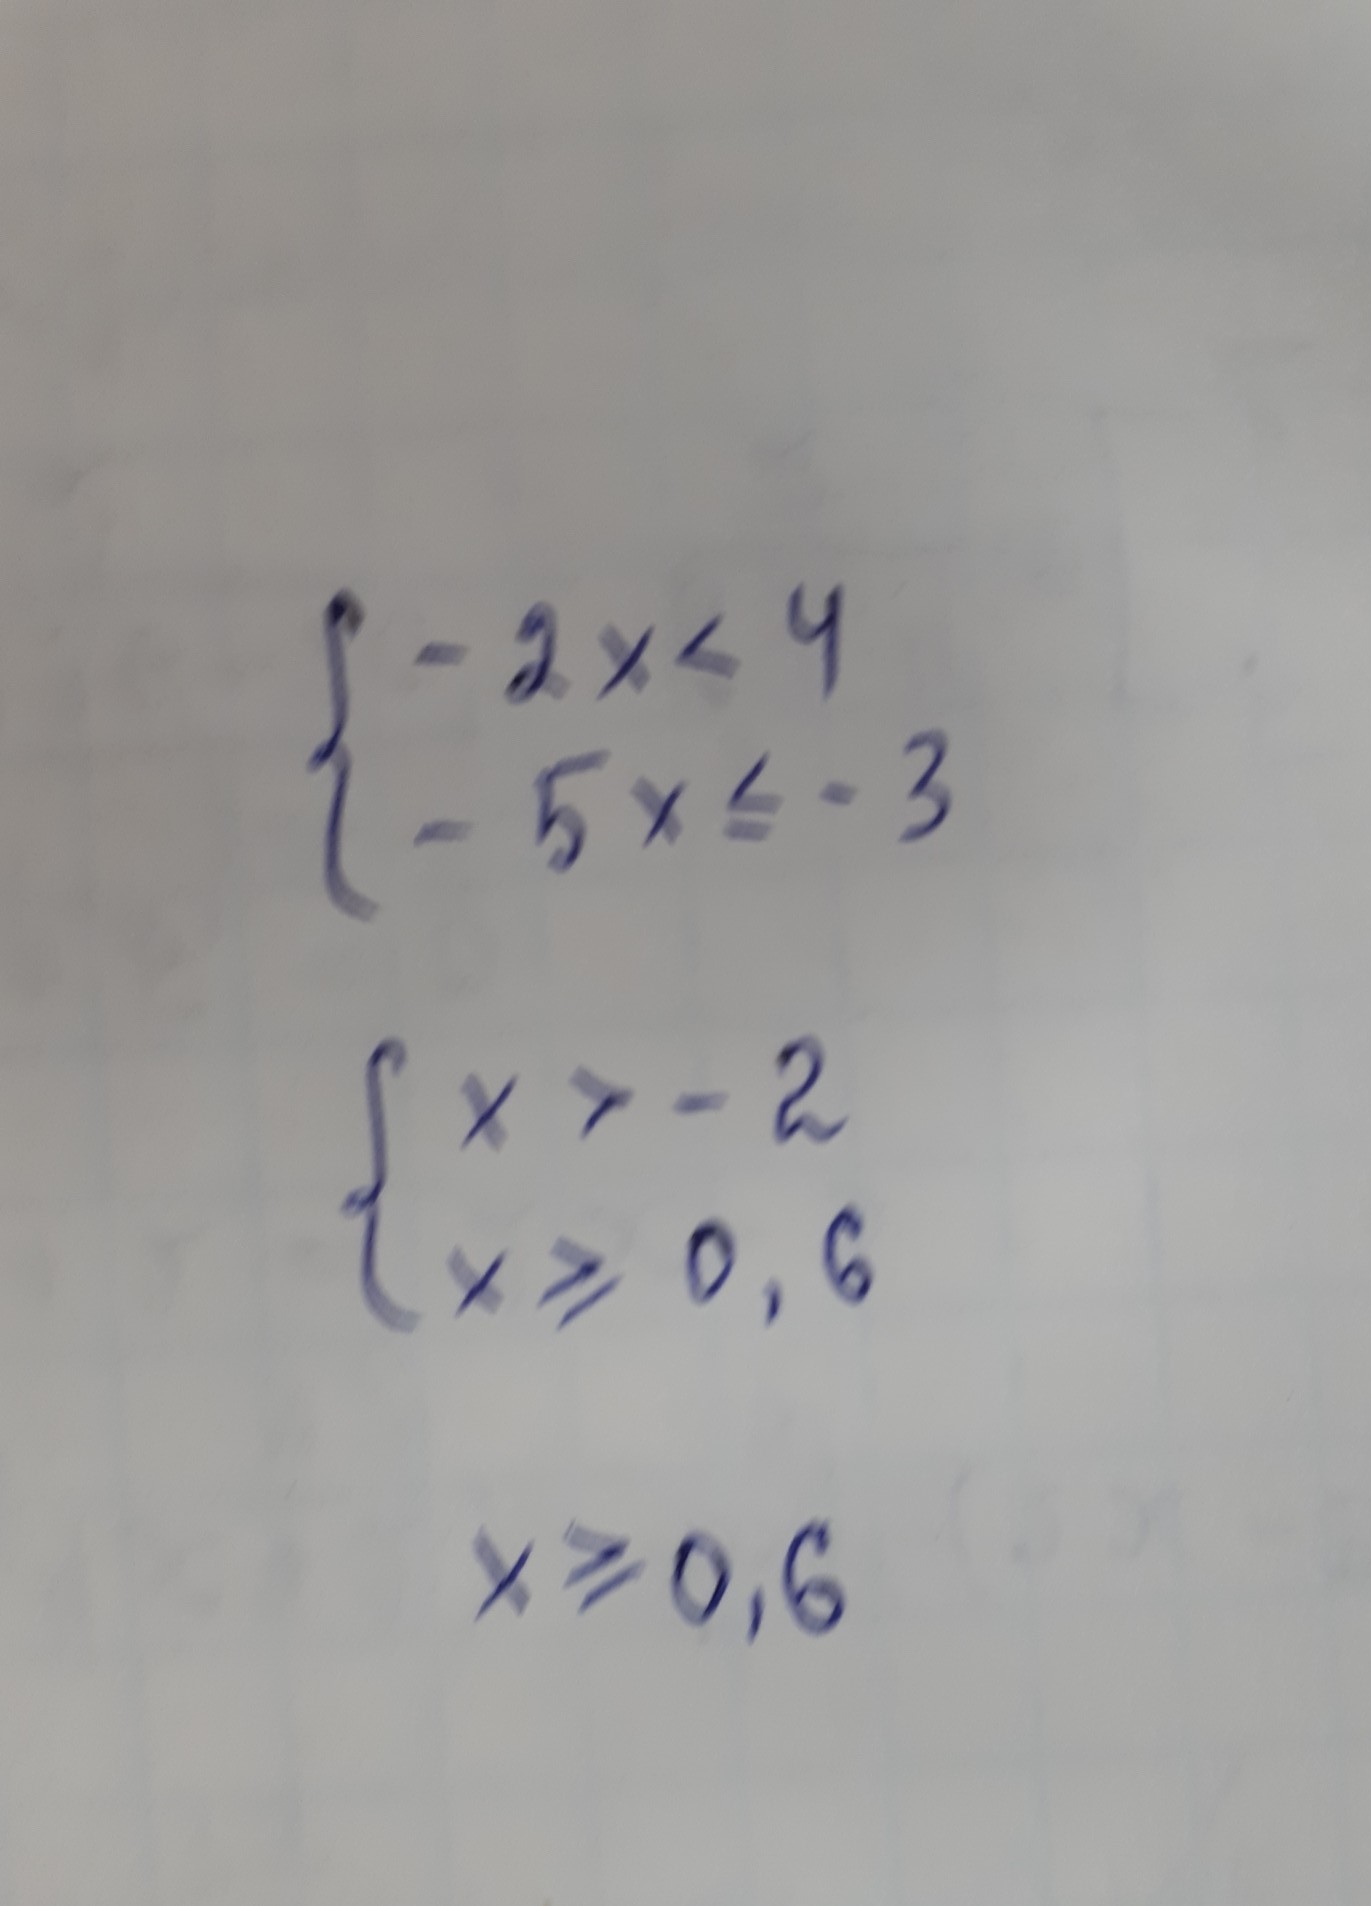 { - 2x < 4
- 5x ≤ - 3
{ x > - 2
x ≥ 0,6
x ≥ 0,6